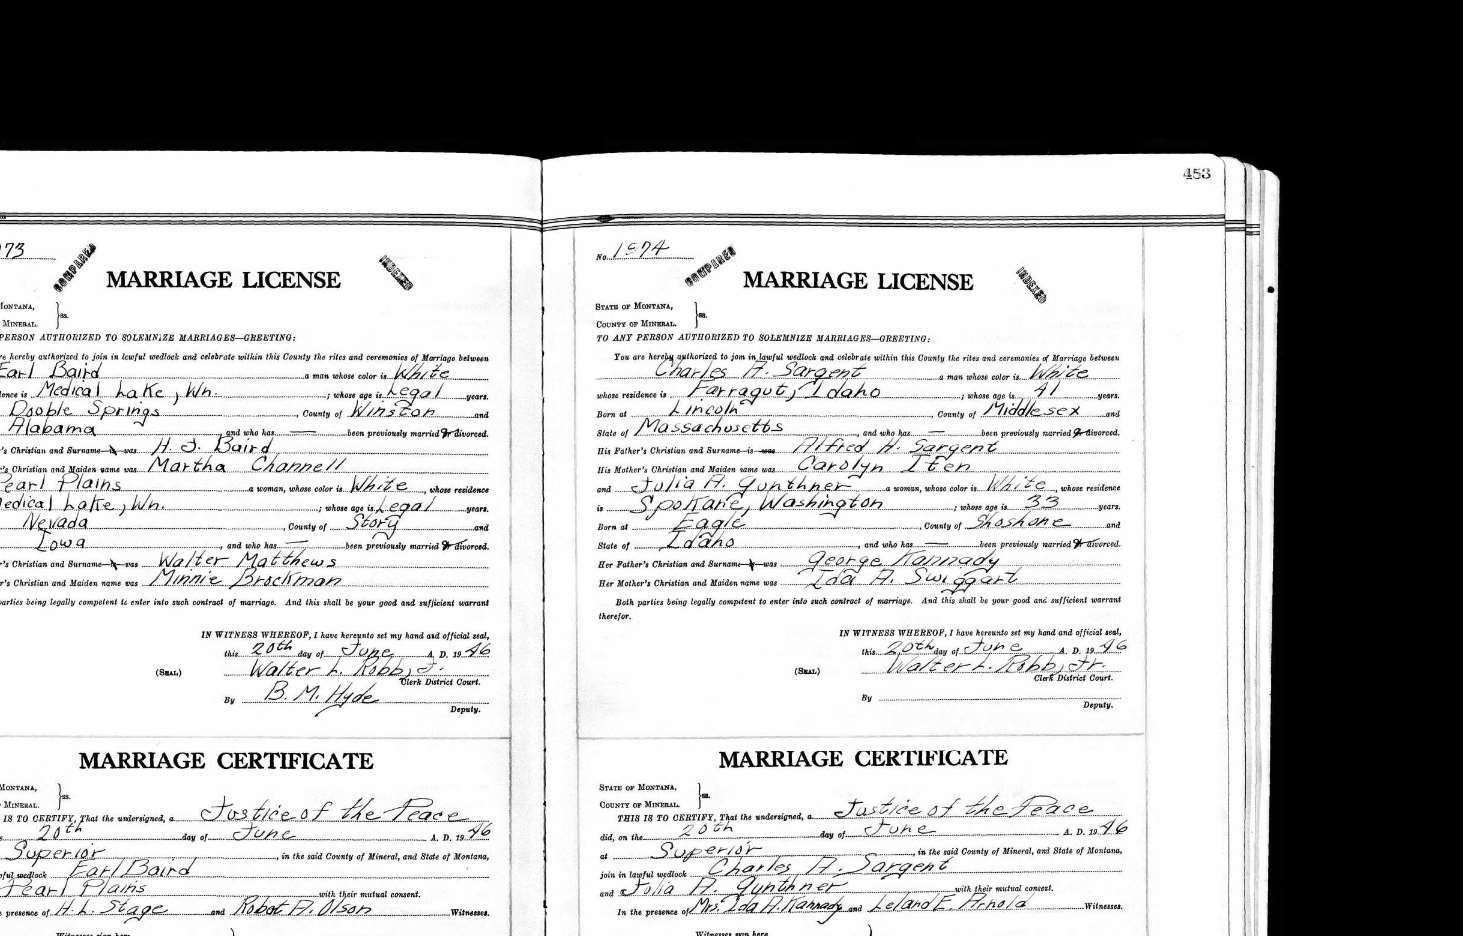 453
73
COMPARED
INDEXED
MARRIAGE LICENSE
MONTANA,
MINERAL. } ss.
PERSON AUTHORIZED TO SOLEMNIZE MARRIAGES—GREETING:
re hereby authorized to join in lawful wedlock and celebrate within this County the rites and ceremonies of Marriage between
Earl Baird a man whose color is White
dence is Medical Lake, Wn. ; whose age is Legal years.
Dooble Springs, County of Winston and
Alabama, and who has — been previously married or divorced.
's Christian and Surname is was H. J. Baird
's Christian and Maiden name was Martha Channell
Pearl Plains a woman, whose color is White, whose residence
Medical Lake, Wn. ; whose age is Legal years.
Nevada, County of Story and
Iowa, and who has — been previously married or divorced.
's Christian and Surname is was Walter Matthews
's Christian and Maiden name was Minnie Brockman
parties being legally competent to enter into such contract of marriage. And this shall be your good and sufficient warrant
IN WITNESS WHEREOF, I have hereunto set my hand and official seal,
this 20th day of June A. D. 1946
(SEAL) Walter L. Robb, J.
Clerk District Court.
By B. M. Hyde
Deputy.
MARRIAGE CERTIFICATE
MONTANA,
MINERAL. } ss.
IS TO CERTIFY, That the undersigned, a Justice of the Peace
20th day of June A. D. 1946
Superior, in the said County of Mineral, and State of Montana,
ful wedlock Earl Baird
Pearl Plains with their mutual consent.
e presence of H. L. Stage and Robot A. Olson Witnesses.
Witnesses sign here
No. 1974
COMPARED
INDEXED
MARRIAGE LICENSE
STATE OF MONTANA,
COUNTY OF MINERAL. } ss.
TO ANY PERSON AUTHORIZED TO SOLEMNIZE MARRIAGES—GREETING:
You are hereby authorized to join in lawful wedlock and celebrate within this County the rites and ceremonies of Marriage between
Charles A. Sargent a man whose color is White
whose residence is Farragut, Idaho ; whose age is 41 years.
Born at Lincoln, County of Middlesex and
State of Massachusetts, and who has — been previously married or divorced.
His Father's Christian and Surname is was Alfred H. Sargent
His Mother's Christian and Maiden name was Carolyn Iten
and Julia A. Gunthner a woman, whose color is White, whose residence
is Spokane, Washington ; whose age is 33 years.
Born at Eagle, County of Shoshone and
State of Idaho, and who has — been previously married or divorced.
Her Father's Christian and Surname is was George Kannady
Her Mother's Christian and Maiden name was Ida A. Swiggart
Both parties being legally competent to enter into such contract of marriage. And this shall be your good and sufficient warrant
therefor.
IN WITNESS WHEREOF, I have hereunto set my hand and official seal,
this 20th day of June A. D. 1946
(SEAL) Walter L. Robb, Jr.
Clerk District Court.
By
Deputy.
MARRIAGE CERTIFICATE
STATE OF MONTANA,
COUNTY OF MINERAL. } ss.
THIS IS TO CERTIFY, That the undersigned, a Justice of the Peace
did, on the 20th day of June A. D. 1946
at Superior, in the said County of Mineral, and State of Montana,
join in lawful wedlock Charles A. Sargent
and Julia A. Gunthner with their mutual consent.
In the presence of Mrs. Ida A. Kannady and Leland E. Arnold Witnesses.
Witnesses sign here